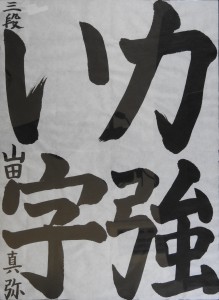 力強
い字
三段
山田真弥